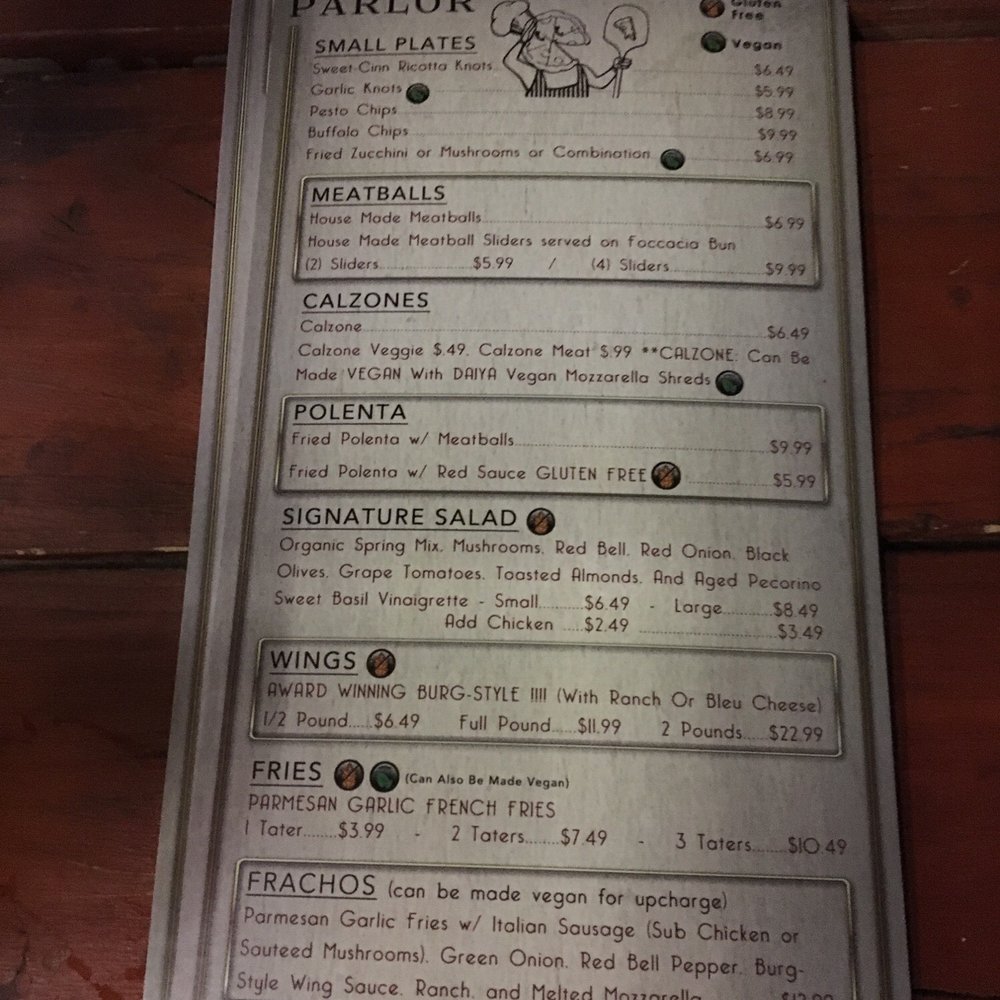 PARLOR
Gluten
Free
Vegan
SMALL PLATES
Sweet-Cinn Ricotta Knots $6.49
Garlic Knots $5.99
Pesto Chips $8.99
Buffalo Chips $9.99
Fried Zucchini or Mushrooms or Combination $6.99
MEATBALLS
House Made Meatballs $6.99
House Made Meatball Sliders served on Foccacia Bun
(2) Sliders $5.99 / (4) Sliders $9.99
CALZONES
Calzone $6.49
Calzone Veggie $.49. Calzone Meat $.99 **CALZONE: Can Be
Made VEGAN With DAIYA Vegan Mozzarella Shreds
POLENTA
Fried Polenta w/ Meatballs $9.99
Fried Polenta w/ Red Sauce GLUTEN FREE $5.99
SIGNATURE SALAD
Organic Spring Mix. Mushrooms. Red Bell. Red Onion. Black
Olives. Grape Tomatoes. Toasted Almonds. And Aged Pecorino
Sweet Basil Vinaigrette - Small $6.49 - Large $8.49
Add Chicken $2.49 $3.49
WINGS
AWARD WINNING BURG-STYLE !!!! (With Ranch Or Bleu Cheese)
1/2 Pound $6.49 Full Pound $11.99 2 Pounds $22.99
FRIES (Can Also Be Made Vegan)
PARMESAN GARLIC FRENCH FRIES
1 Tater $3.99 - 2 Taters $7.49 - 3 Taters $10.49
FRACHOS (can be made vegan for upcharge)
Parmesan Garlic Fries w/ Italian Sausage (Sub Chicken or
Sauteed Mushrooms). Green Onion. Red Bell Pepper. Burg-
Style Wing Sauce. Ranch. and Melted Mozzarella